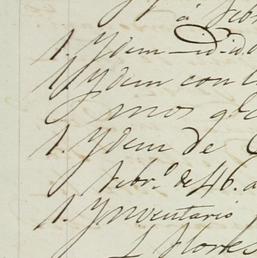 á Febr
1. Ydem id. id.
1 Ydem con l
mos q
1. Ydem de
Febr.º de 46. a
1. Ynventario
Flores